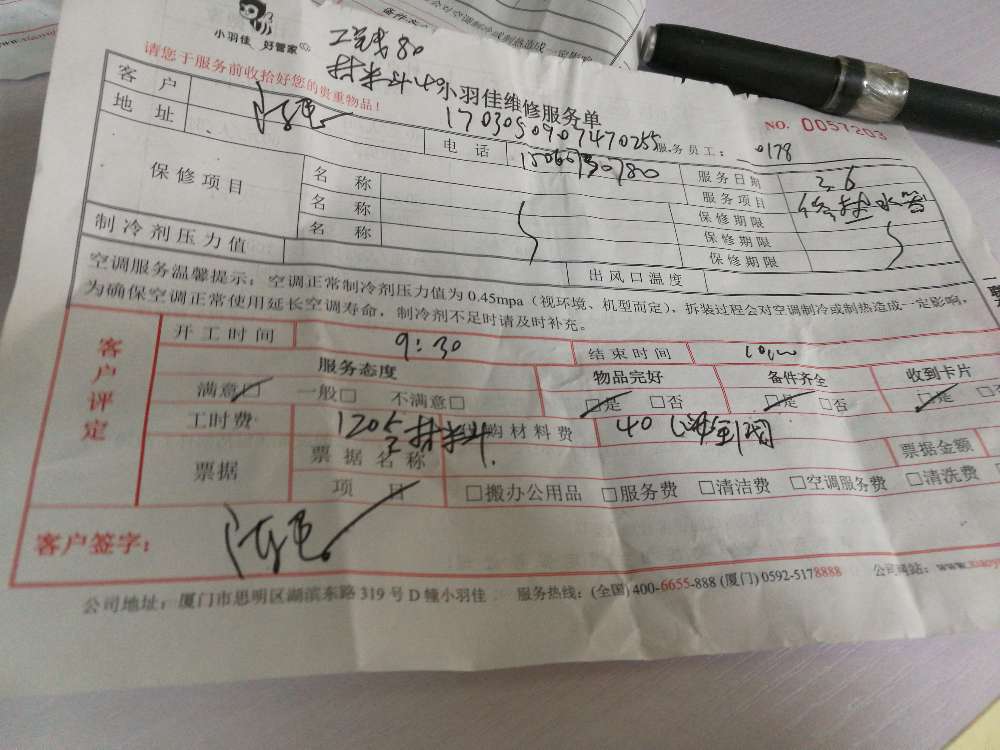 小羽佳 好管家
工钱80
材料
请您于服务前收拾好您的贵重物品！
小羽佳维修服务单
NO. 0057203
170305090747025
服务员工： 0178
客 户
地 址
电 话
服务日期 3.6
服务项目 修 水管
保修项目
名 称
保修期限
名 称
保修期限
名 称
保修期限
制冷剂压力值
出风口温度
空调服务温馨提示：空调正常制冷剂压力值为0.45mpa（视环境、机型而定），拆装过程会对空调制冷或制热造成一定影响，
为确保空调正常使用延长空调寿命，制冷剂不足时请及时补充。
客户评定
开工时间 9:30
结束时间
服务态度
物品完好
备件齐全
收到卡片
满意□ 一般□ 不满意□
□是 □否
□是 □否
□是
工时费 120
购材料费 40
票据
票据名称
票据金额
项 目
□搬办公用品 □服务费 □清洁费 □空调服务费 □清洗费
客户签字：
公司地址：厦门市思明区湖滨东路319号D幢小羽佳 服务热线：(全国) 400-6655-888 (厦门) 0592-5178888 公司网站：www.